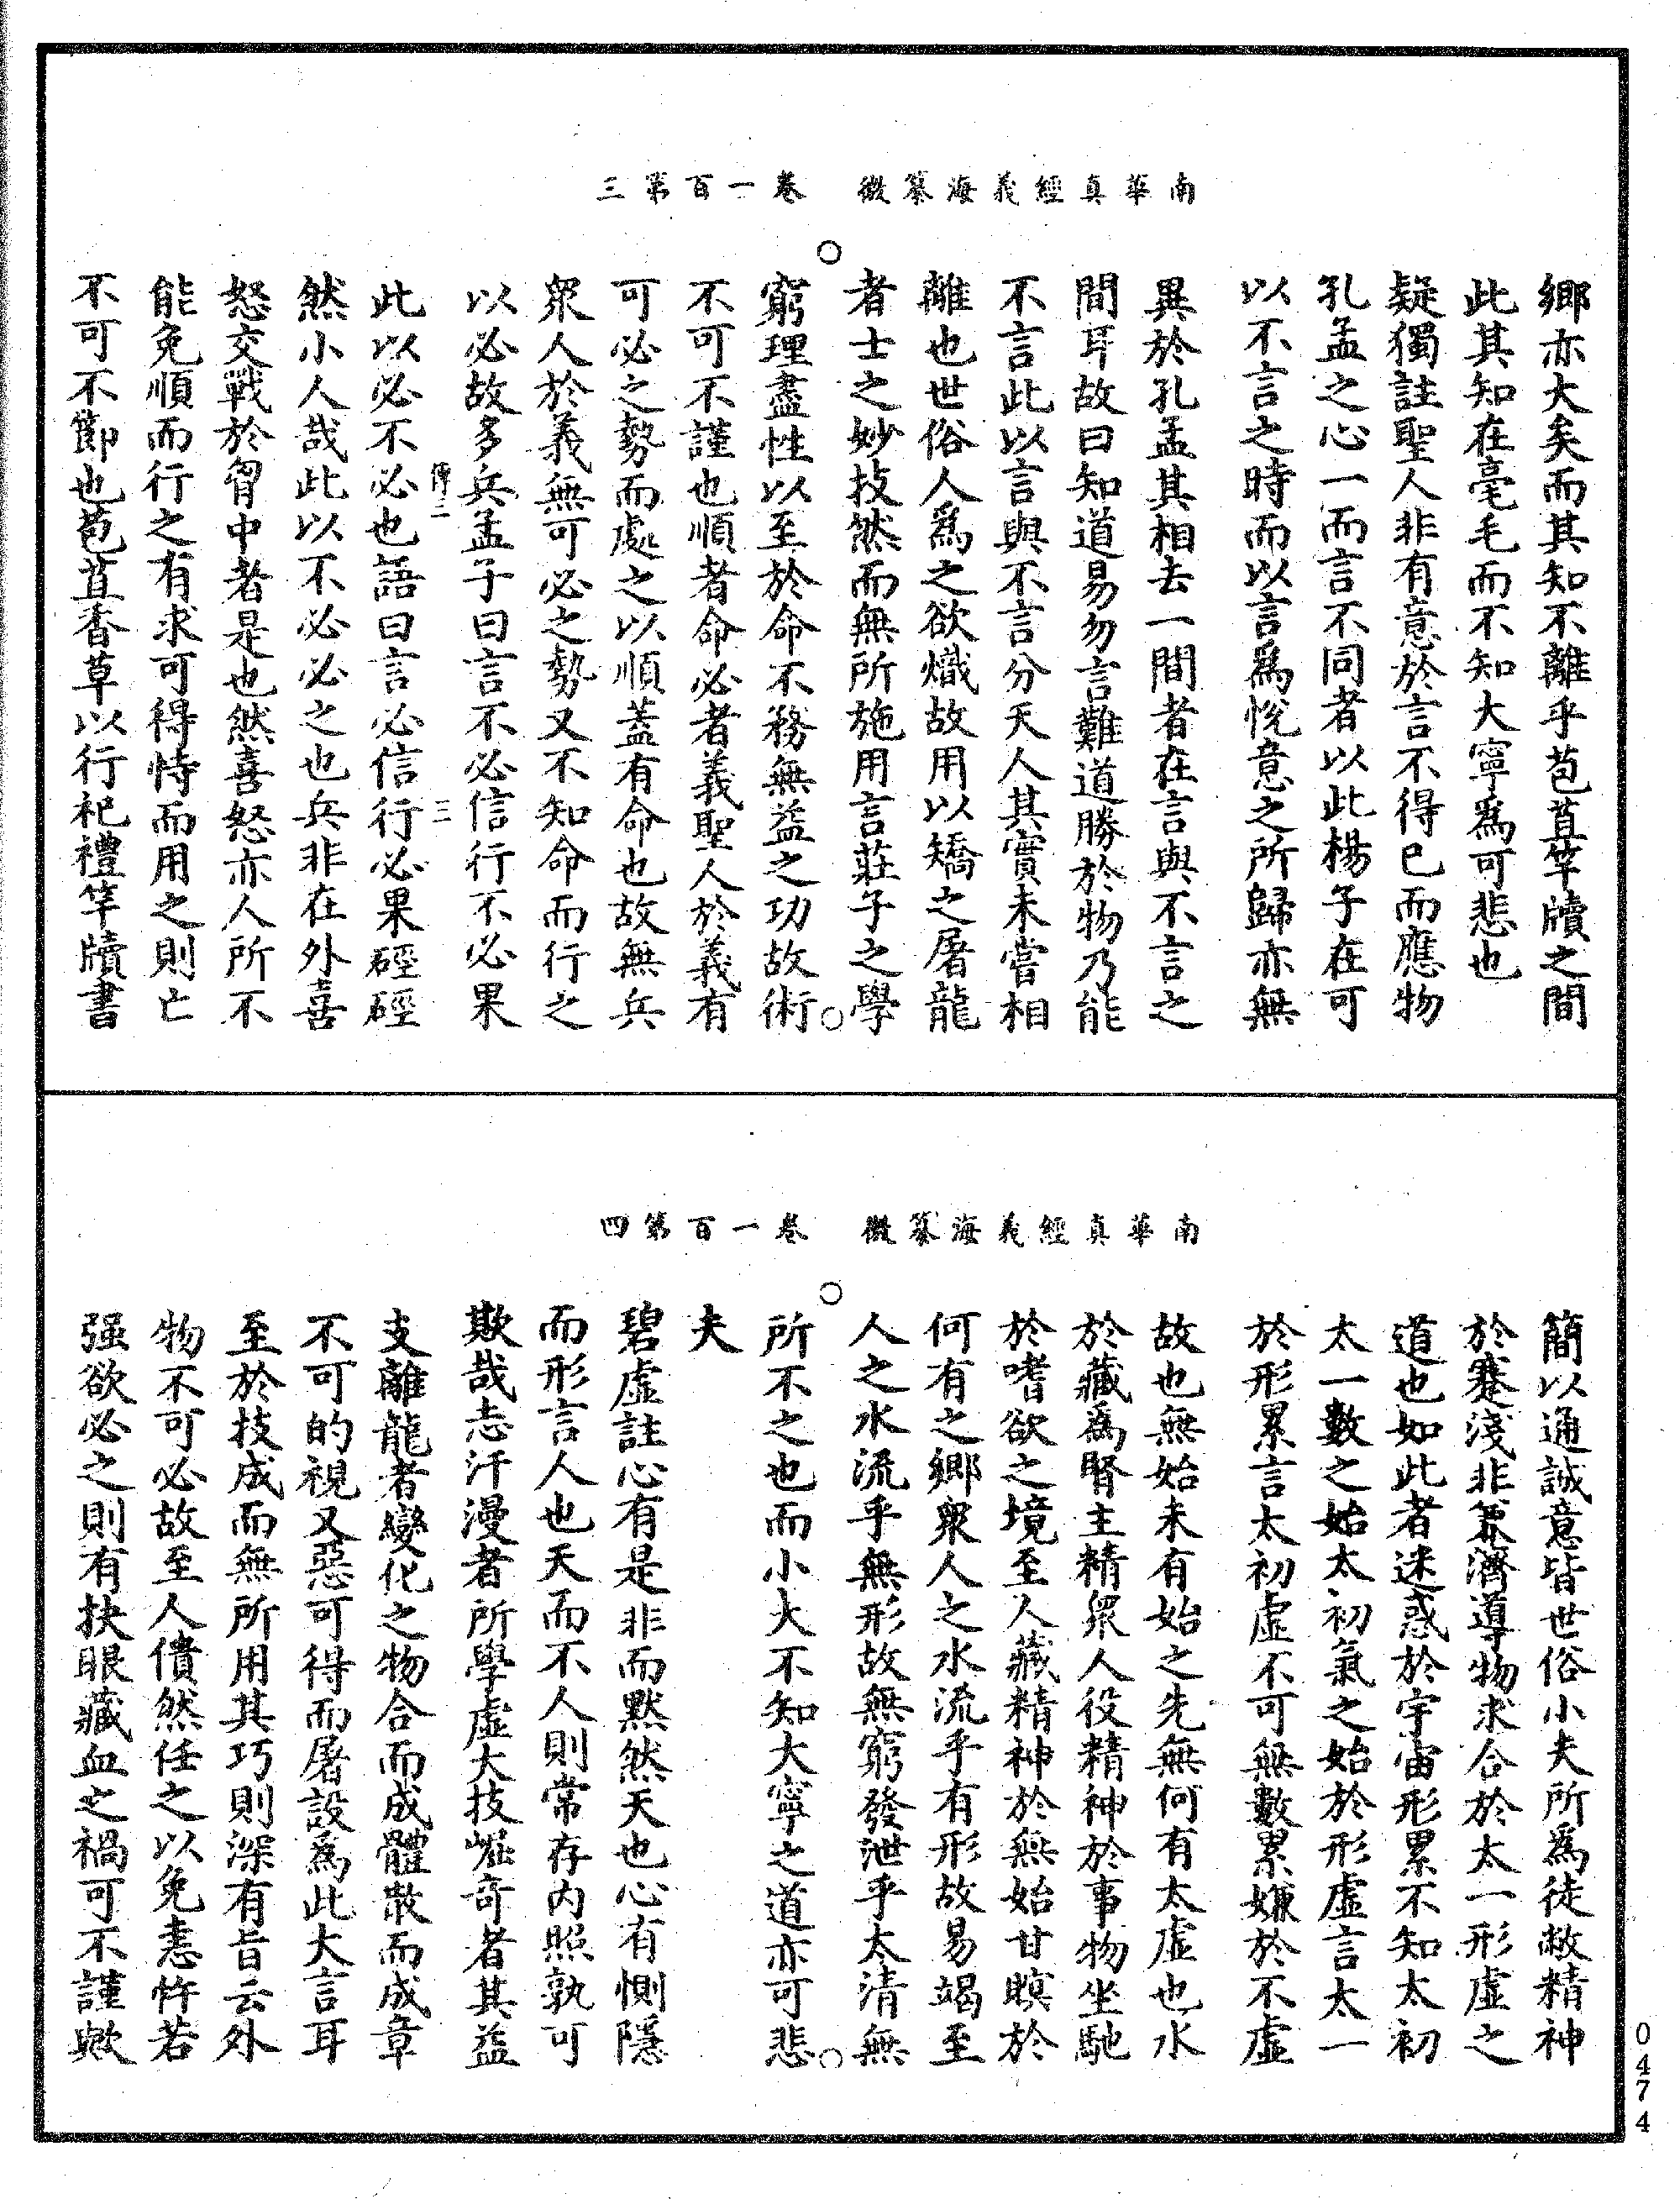 南華真經義海纂微　卷一百第三
鄉亦大矣而其知不離乎苞苴竿牘之間
此其知在毫毛而不知大寧為可悲也
疑獨註聖人非有意於言不得已而應物
孔孟之心一而言不同者以此楊子在可
以不言之時而以言為悅意之所歸亦無
異於孔孟其相去一間者在言與不言之
間耳故曰知道易勿言難道勝於物乃能
不言此以言與不言分天人其實未嘗相
離也世俗人為之欲熾故用以矯之屠龍
者士之妙技然而無所施用言莊子之學
窮理盡性以至於命不務無益之功故術
不可不謹也順者命必者義聖人於義有
可必之勢而處之以順蓋有命也故無兵
眾人於義無可必之勢又不知命而行之
以必故多兵孟子曰言不必信行不必果
此以必不必也語曰言必信行必果硜硜
傳二　三
然小人哉此以不必必之也兵非在外喜
怒交戰於胷中者是也然喜怒亦人所不
能免順而行之有求可得恃而用之則亡
不可不節也苞苴香草以行祀禮竿牘書
南華真經義海纂微　卷一百第四
簡以通誠意皆世俗小夫所為徒敝精神
於蹇淺非兼濟導物求合於太一形虛之
道也如此者迷惑於宇宙形累不知太初
太一數之始太初氣之始於形虛言太一
於形累言太初虛不可無數累嫌於不虛
故也無始未有始之先無何有太虛也水
於藏為腎主精眾人役精神於事物坐馳
於嗜欲之境至人藏精神於無始甘瞑於
何有之鄉眾人之水流乎有形故易竭至
人之水流乎無形故無窮發泄乎太清無
所不之也而小大不知大寧之道亦可悲
夫
碧虛註心有是非而默然天也心有惻隱
而形言人也天而不人則常存內照孰可
欺哉志汗漫者所學虛大技崛奇者其益
支離龍者變化之物合而成體散而成章
不可的視又惡可得而屠設為此大言耳
至於技成而無所用其巧則深有旨云外
物不可必故至人僓然任之以免恚忤若
强欲必之則有抉眼藏血之禍可不謹歟
0474